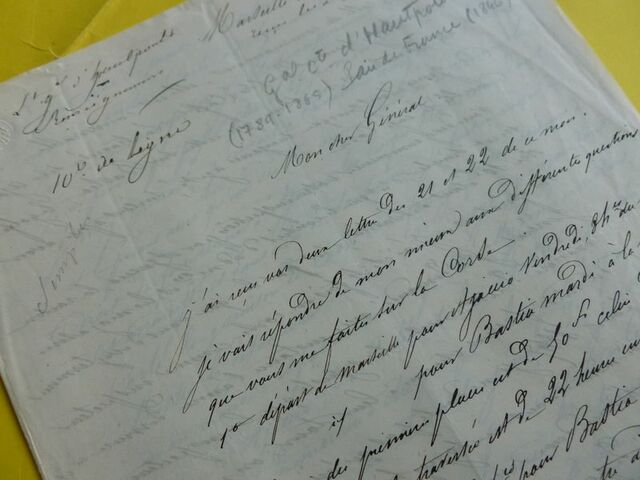 Marseille
Lt Gal d'Hautpoul
Renseignemens
Gal Cte d'Hautpoul
(1789-1865) Pair de France (1846)
10e de Ligne
Mon cher Général
j'ai reçu vos deux lettre des 21 et 22 de ce mois.
je vais répondre de mon mieux aux différentes questions
que vous me faites sur la Corse.
1º départ de Marseille pour Ajaccio Vendredi, 8 hres du
id pour Bastia mardi à la
des premières places est de 50 f celui
traversée est de 22 heures
pour Bastia